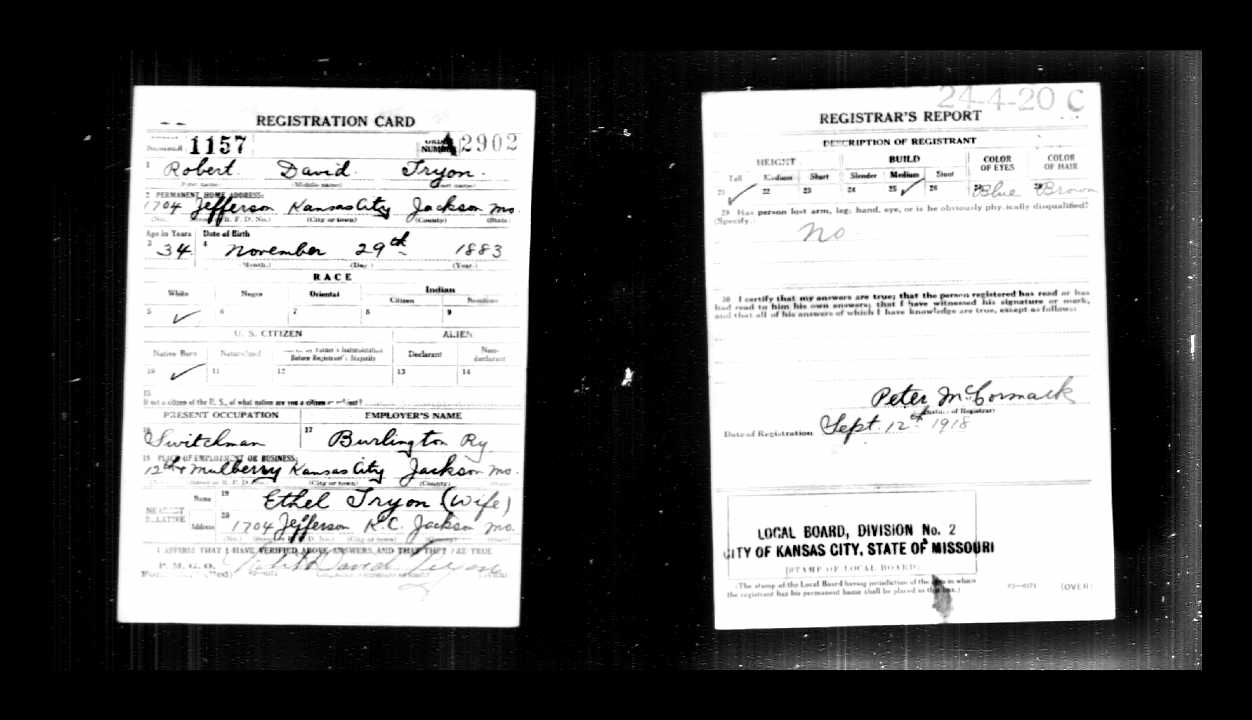 REGISTRATION CARD
1157
ORDER NUMBER A2902
1 Robert David Tryon.
(First name) (Middle name) (Last name)
2 PERMANENT HOME ADDRESS:
1704 Jefferson Kansas City Jackson Mo.
(No.) (Street or R. F. D. No.) (City or town) (County) (State)
Age in Years Date of Birth
3 34 4 November 29th 1883
(Month.) (Day.) (Year.)
RACE
White Negro Oriental Indian
Citizen Noncitizen
5 ✓ 6 7 8 9
U. S. CITIZEN ALIEN
Native Born Naturalized Citizen by Father's Naturalization Before Registrant's Majority Declarant Non-declarant
10 ✓ 11 12 13 14
15
If not a citizen of the U. S., of what nation are you a citizen or subject?
PRESENT OCCUPATION EMPLOYER'S NAME
16 Switchman 17 Burlington Ry
18 PLACE OF EMPLOYMENT OR BUSINESS:
12th & Mulberry Kansas City Jackson Mo.
(No.) (Street or R. F. D. No.) (City or town) (County) (State)
NEAREST RELATIVE Name 19 Ethel Tryon (Wife)
Address 20 1704 Jefferson K.C. Jackson Mo.
(No.) (Street or R. F. D. No.) (City or town) (County) (State)
I AFFIRM THAT I HAVE VERIFIED ABOVE ANSWERS AND THAT THEY ARE TRUE
P. M. G. O.
Robert David Tryon
24-4-20 C
REGISTRAR'S REPORT
DESCRIPTION OF REGISTRANT
HEIGHT BUILD COLOR OF EYES COLOR OF HAIR
Tall Medium Short Slender Medium Stout
21 ✓ 22 23 24 25 ✓ 26 27 Blue 28 Brown
29 Has person lost arm, leg, hand, eye, or is he obviously physically disqualified?
(Specify.)
No
30 I certify that my answers are true; that the person registered has read or has
had read to him his own answers; that I have witnessed his signature or mark,
and that all of his answers of which I have knowledge are true, except as follows:
Peter McCormack
(Signature of Registrar)
Date of Registration Sept. 12th 1918
LOCAL BOARD, DIVISION No. 2
CITY OF KANSAS CITY, STATE OF MISSOURI
(STAMP OF LOCAL BOARD)
(The stamp of the Local Board having jurisdiction of the area in which
the registrant has his permanent home shall be placed in this box.)
(OVER)